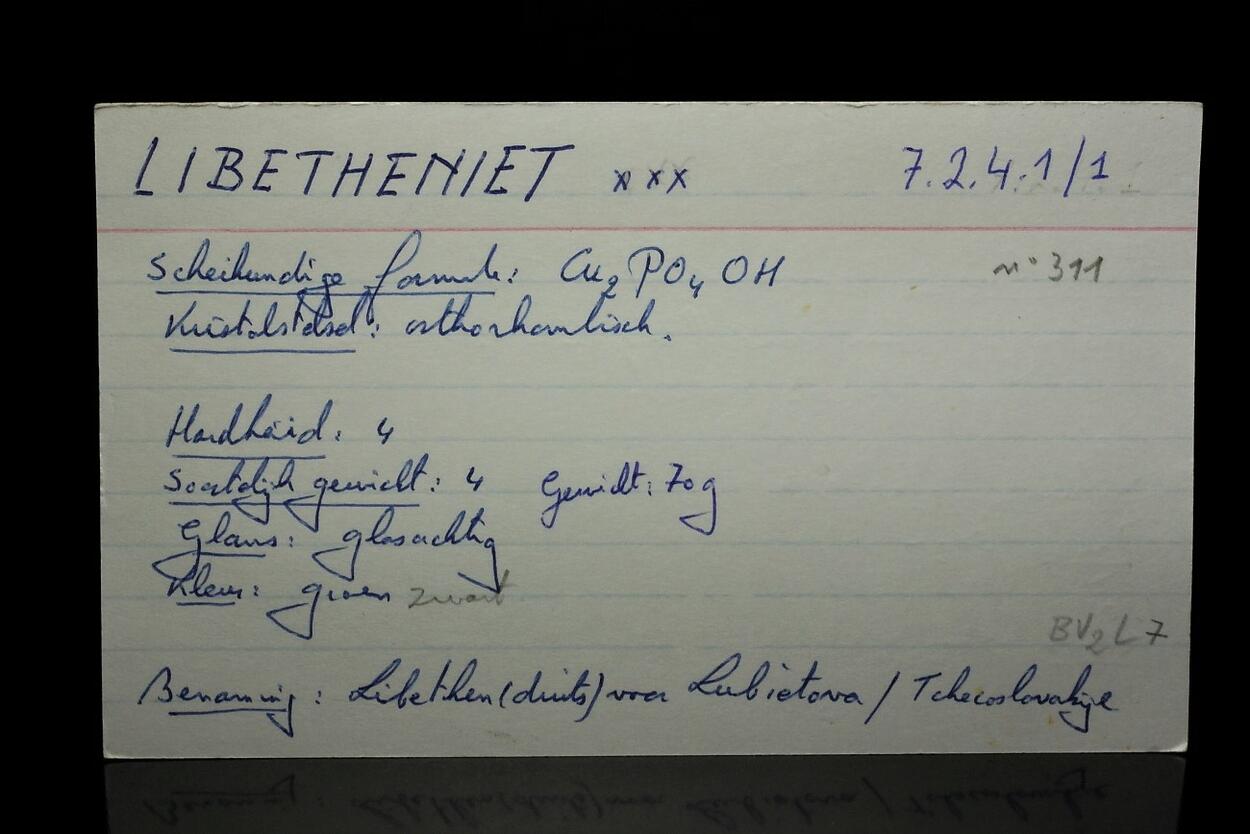 LIBETHENIET xxx 7.2.4.1/1
Scheikundige formule: Cu₂PO₄OH n° 311
Kristalstelsel: orthorhombisch.
Hardheid: 4
Soortelijk gewicht: 4 Gewicht: 70g
Glans: glasachtig
Kleur: groen zwart
BV₂L7
Benaming: Libethen (duits) voor Lubietova / Tchecoslovakije